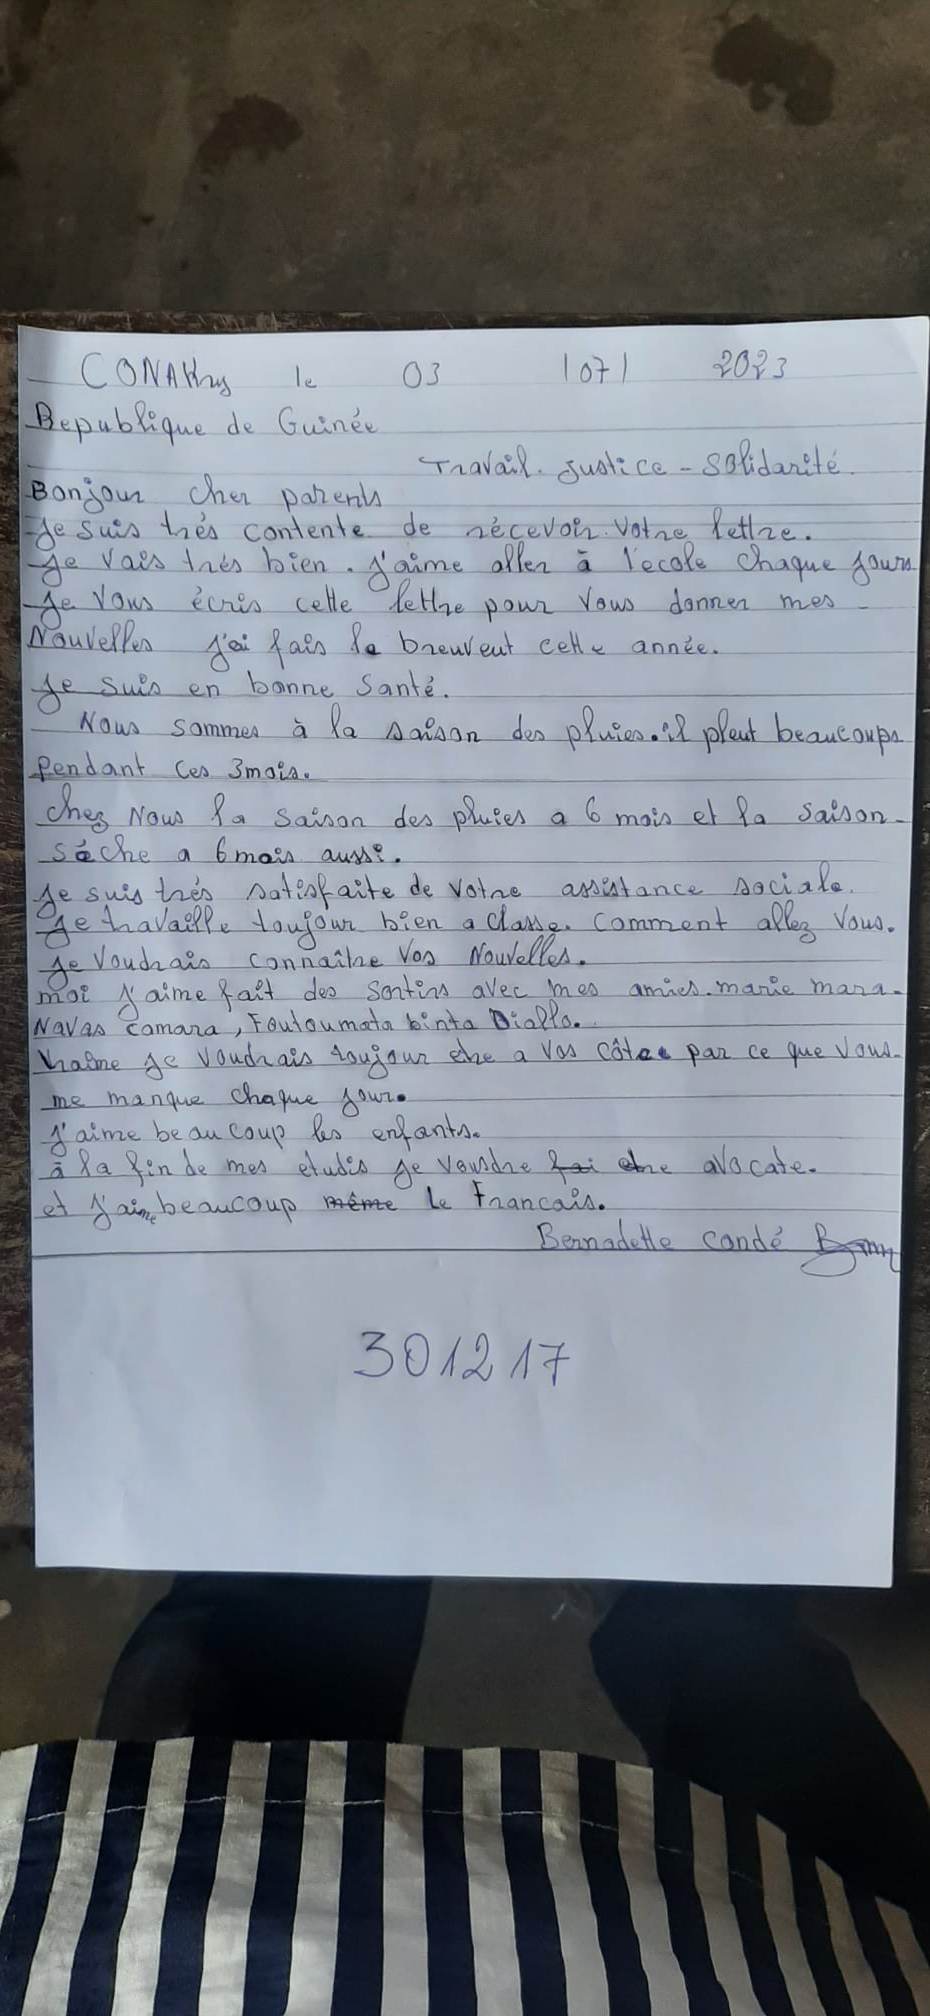 CONAKry le 03 /07/ 2023
Republique de Guinée
Travail. Justice - Solidarité.
Bonjour cher parents
Je suis très contente de récevoir votre lettre.
Je vais très bien. J'aime aller à l'ecole chaque jours
Je vous écris cette lettre pour vous donner mes
Nouvelles j'ai fais le breuveut cette année.
Je suis en bonne Santé.
Nous sommes à la saison des pluies. il pleut beaucoups
Pendant ces 3mois.
Chez Nous la saison des pluies a 6 mois et la saison
sèche a 6 mois aussi.
Je suis très satisfaite de votre assistance sociale.
Je travaille toujour bien a classe. Comment allez vous.
Je voudrais connaître vos Nouvelles.
moi j'aime fait des sortirs avec mes amies. marie mara.
Navas camara, Foutoumata binta Diallo.
je voudrais toujour etre a vos côtee par ce que vous
me manque chaque jour.
J'aime beaucoup les enfants.
à la fin de mes etudis je vousdre etre avocate.
et j'aime beaucoup même le Francais.
Bernadette condé
301217